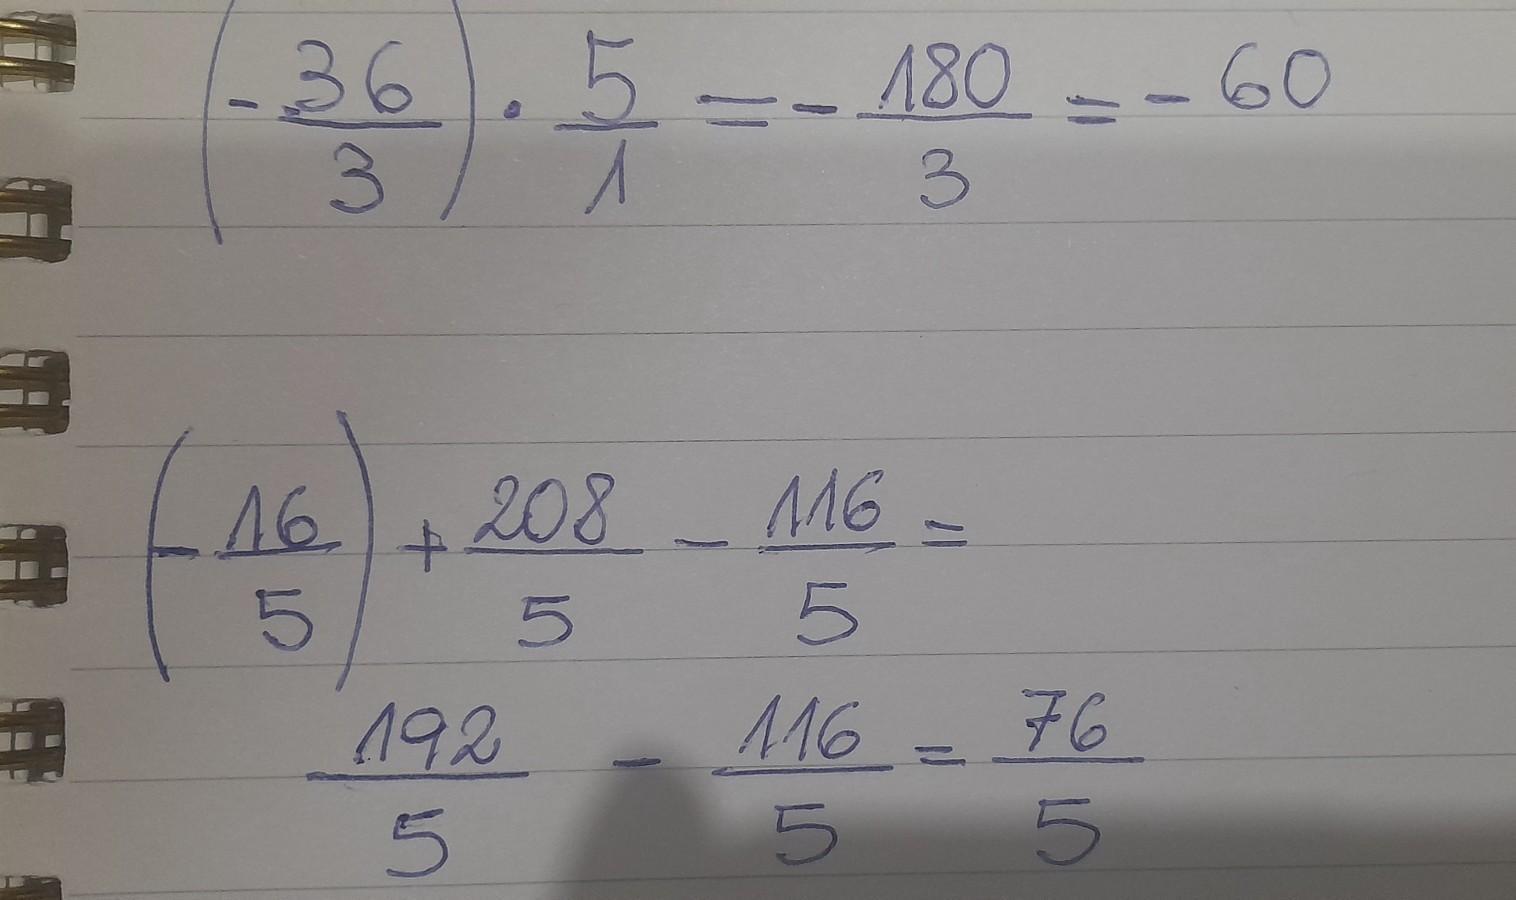 (- 36/3) · 5/1 = - 180/3 = - 60
(- 16/5) + 208/5 - 116/5 =
192/5 - 116/5 = 76/5